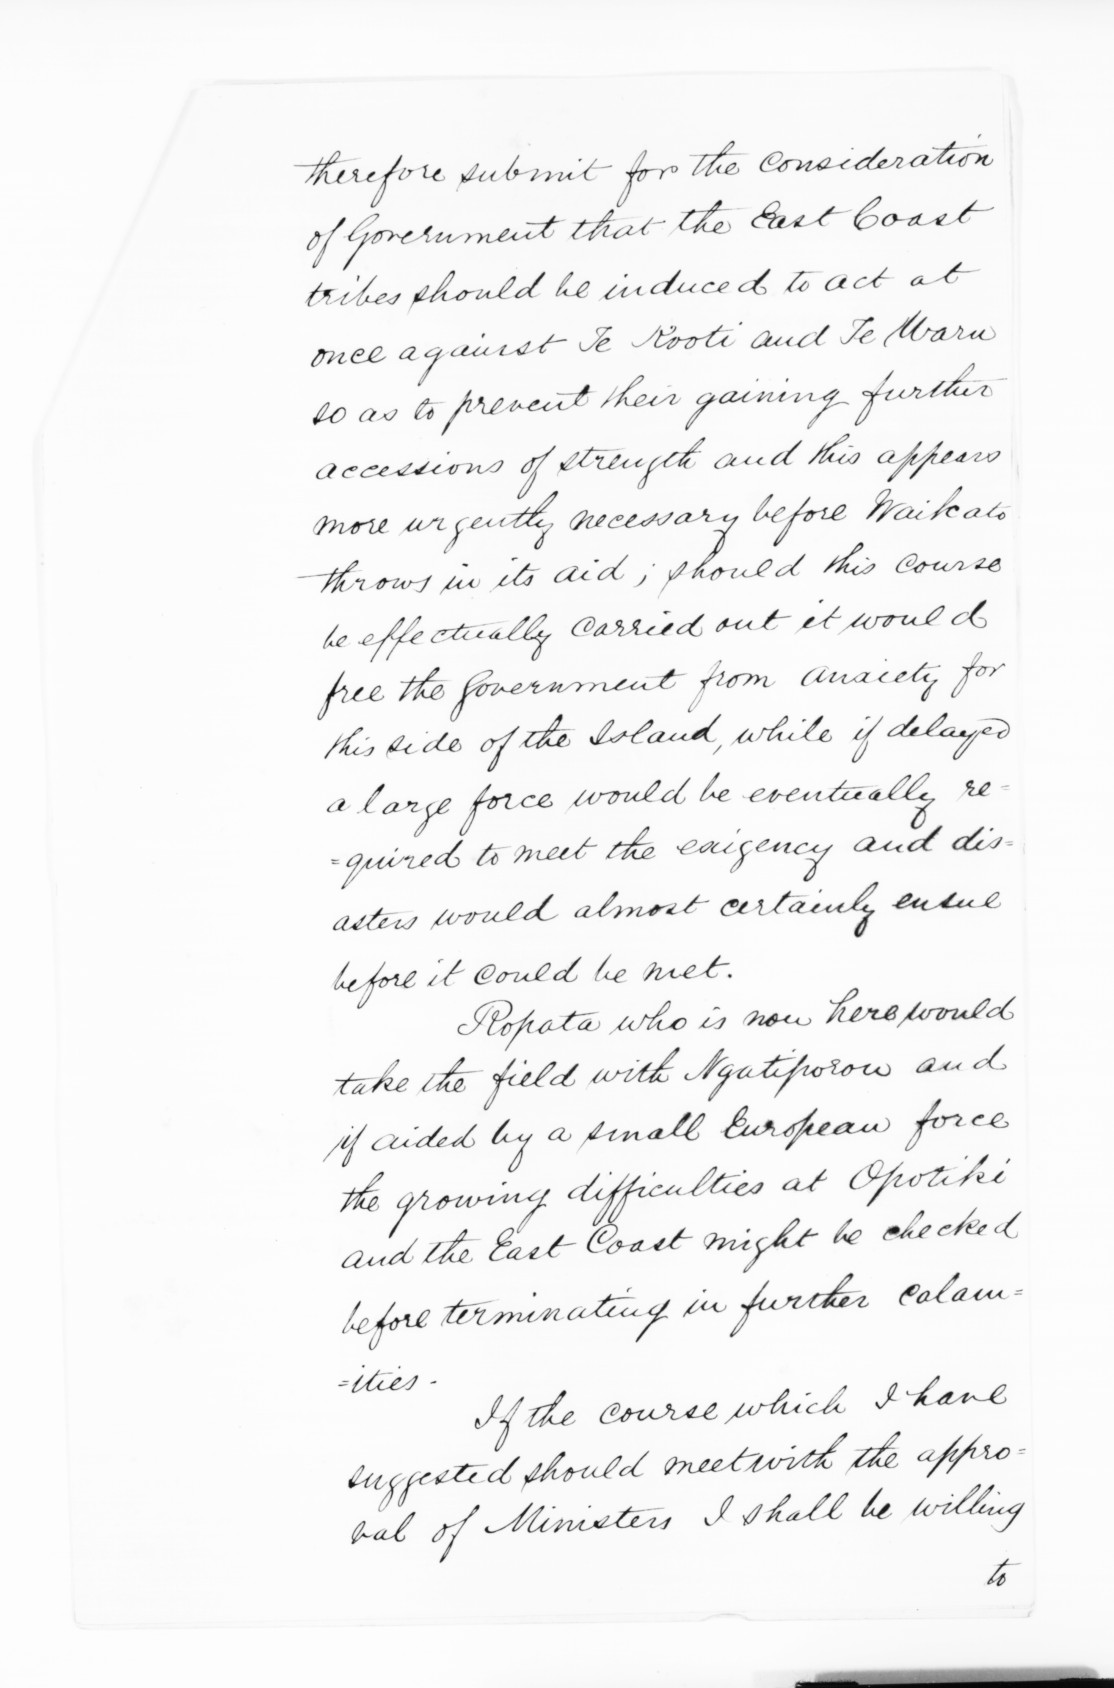 therefore submit for the consideration
of Government that the East Coast
tribes should be induced to act at
once against Te Kooti and Te Waru
so as to prevent their gaining further
accessions of strength and this appears
more urgently necessary before Waikato
throws in its aid; should this course
be effectually carried out it would
free the Government from anxiety for
this side of the Island, while if delayed
a large force would be eventually re=
=quired to meet the exigency and dis=
asters would almost certainly ensue
before it could be met.
Ropata who is now here would
take the field with Ngatiporou and
if aided by a small European force
the growing difficulties at Opotiki
and the East Coast might be checked
before terminating in further calam=
=ities.
If the course which I have
suggested should meet with the appro=
val of Ministers I shall be willing
to